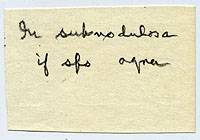 In subnodulosa
if sps agree